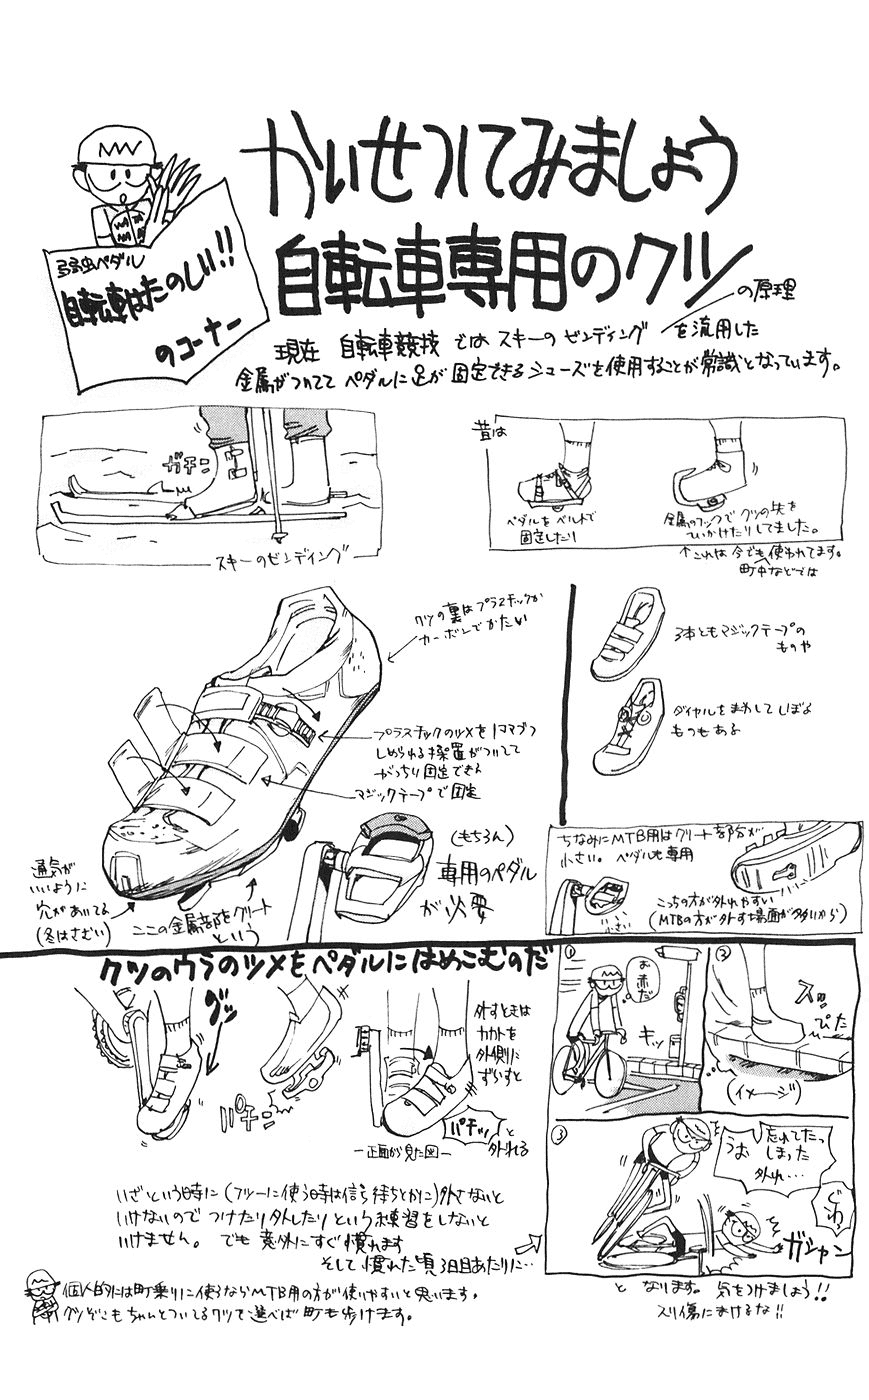 かいせつしてみましょう
自転車専用のクツ
の原理
弱虫ペダル
自転車はたのしい!!
のコーナー
現在 自転車競技 では スキーの ビンディング を流用した
金属がついてて ペダルに足が 固定できるシューズを使用することが常識となっています。
ガチン
スキーのビンディング
昔は
ペダルをベルトで
固定したり
金属のフックでクツの先を
ひっかけたりしてました。
↑これは今でも使われてます。
町中などでは
クツの裏はプラスチックか
カーボンでかたい
プラスチックのツメを1コマづつ
しめられる装置がついてて
がっちり固定できる
マジックテープで固定
3本ともマジックテープの
ものや
ダイヤルをまわしてしぼる
ものもある
通気が
いいように
穴があいてる
(冬はさむい)
ここの金属部をクリート
という
(もちろん)
専用のペダル
が必要
ちなみにMTB用はクリート部分が
小さい。ペダルも専用
小さい
こっちの方が外れやすい
(MTBの方が外す場面が多いから)
クツのウラのツメをペダルにはめこむのだ
グッ
パチン
外すときは
カカトを
外側に
ずらすと
パチッ
と
外れる
ー正面から見た図ー
いざという時に(フツーに使う時は信号待ちとかに)外さないと
いけないので つけたり外したりという練習をしないと
いけません。でも 意外にすぐ慣れます
そして慣れた頃3日目あたりに…
①
お
赤だ
キッ
②
スッ
ぴた
(イメージ)
③
うお
忘れてたっ
しまった
外れ…
ガシャン
と なります。気をつけましょう!!
スリ傷にまけるな!!
個人的には町乗りに使うならMTB用の方が使いやすいと思います。
クツぞこもちゃんとついてるクツで選べば町も歩けます。